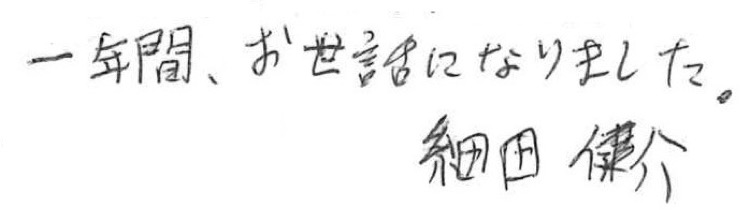 一年間、お世話になりました。
細田 健介